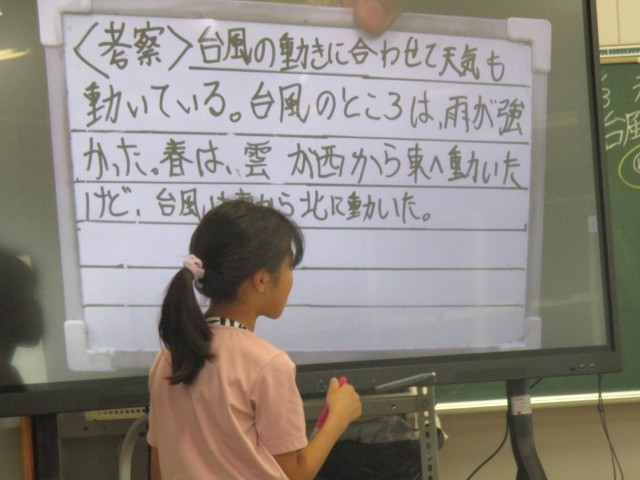 〈考察〉台風の動きに合わせて天気も
動いている。台風のところは、雨が強
かった。春は、雲が西から東へ動いた
けど、台風は から北に動いた。
台風